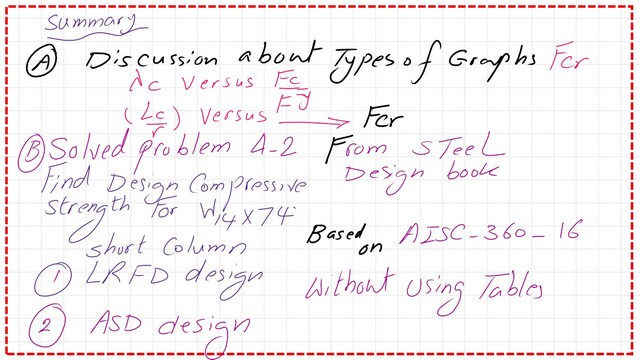 Summary
A Discussion about Types of Graphs Fcr
λc versus Fc/Fy
(Lc/r) versus → Fcr
B Solved problem 4-2 From STeeL
Design book
Find Design Compressive
strength For W14x74
short Column
Based on AISC-360-16
1 LRFD design
Without Using Tables
2 ASD design